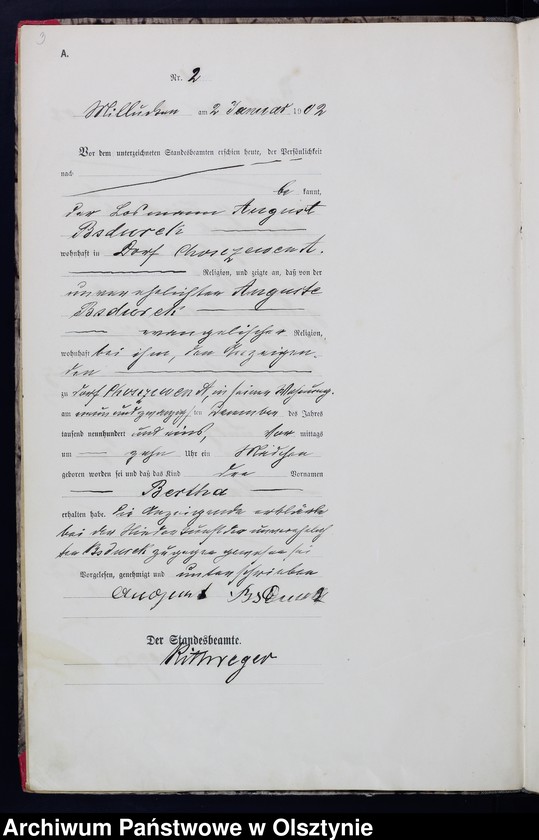 3
A.
Nr. 2
Milluken am 2 Januar 1902
Vor dem unterzeichneten Standesbeamten erschien heute, der Persönlichkeit
nach
be kannt,
der Losmann August
Bsdurek
wohnhaft in Dorf
Religion, und zeigte an, daß von der
unverehelichten Auguste
Bsdurek
evangelischer Religion,
wohnhaft bei ihm, dem Anzeigen-
den
zu Dorf in seiner Wohnung,
am neun und zwanzigsten Dezember des Jahres
tausend neunhundert und eins, Vor mittags
um zehn Uhr ein Mädchen
geboren worden sei und daß das Kind den Vornamen
Bertha
erhalten habe. Der Anzeigende erklärte
bei der Niederkunft der unverehelich
ten Bsdurek zugegen gewesen sei
Vorgelesen, genehmigt und unterschrieben
August Bsdurek
Der Standesbeamte.
Rittweger
Archiwum Państwowe w Olsztynie